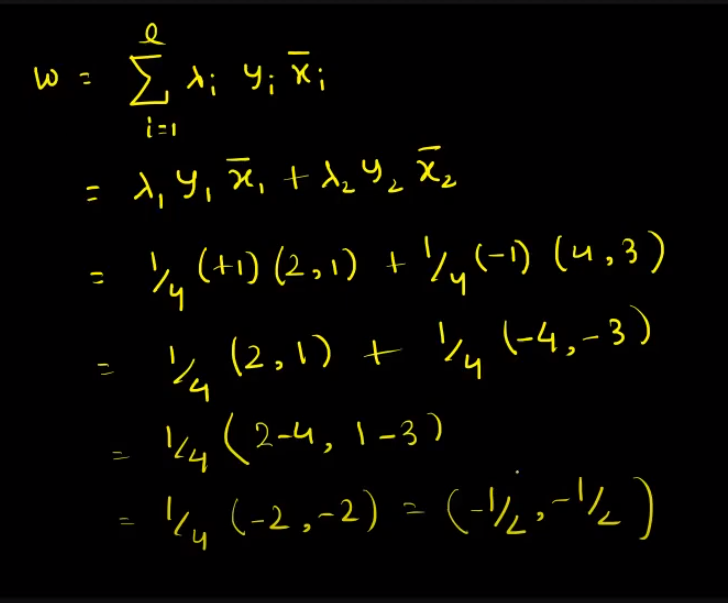 w = \sum_{i=1}^{l} λ_i y_i x̄_i
= λ_1 y_1 x̄_1 + λ_2 y_2 x̄_2
= 1/4 (+1) (2,1) + 1/4 (-1) (4,3)
= 1/4 (2,1) + 1/4 (-4,-3)
= 1/4 (2-4, 1-3)
= 1/4 (-2,-2) = (-1/2, -1/2)